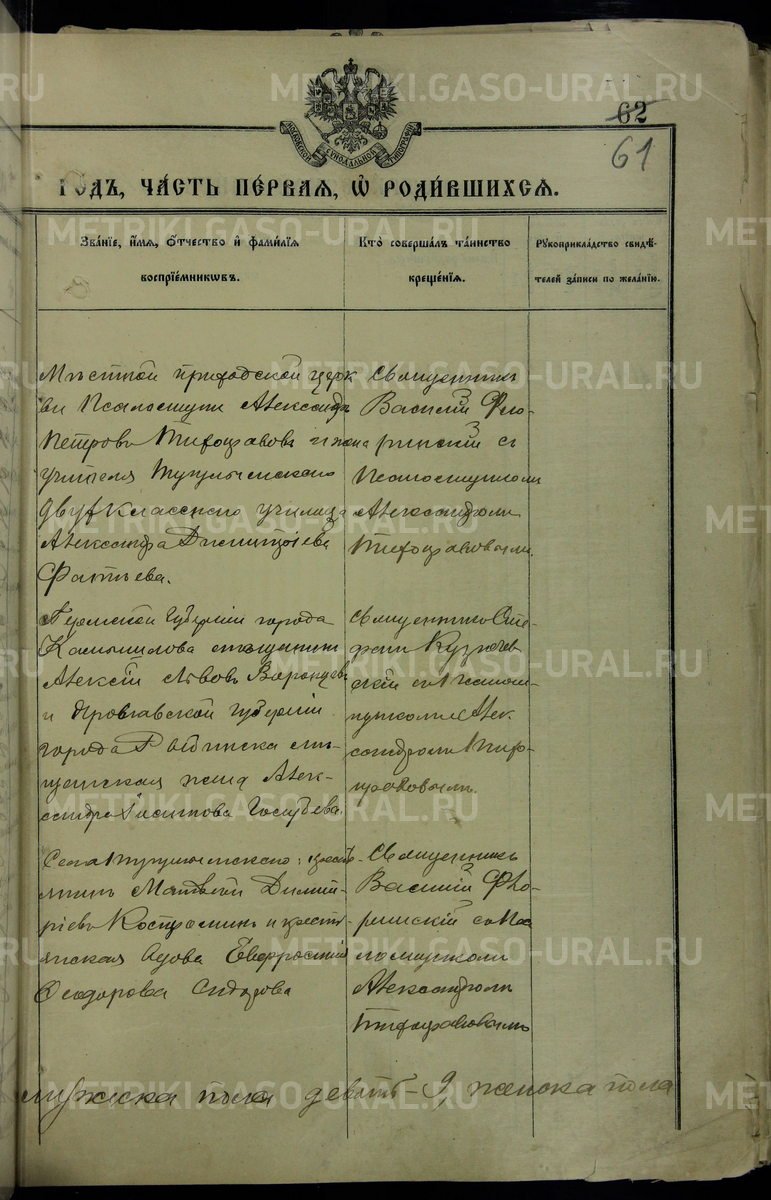 62
61
МОСКОВСКОЙ СѴНОДАЛЬНОЙ ТИПОГРАФІИ
ГОДЪ, ЧА́СТЬ ПЕ́РВАЯ, Ѽ РОДИ́ВШИХСЯ.
Зва́нїе, и҆́мя, ѻ҆́тчество и҆ фами́лїя
воспрїе́мникѡвъ.
Кто̀ соверша́лъ та́инство
креще́нїя.
Рꙋкоприкла́дство свидѣ́-
телей за́писи по жела́нїю.
Мѣстной приходской церк
ви Псаломщикъ Александръ
Петровъ и жена
учителя
двухкласснаго училища
Александра Димитріева
Фатѣева.
Священникъ
Василій Фло-
ринскій съ
Псаломщикомъ
Александромъ
Пермской губерніи города
Камышлова мѣщанинъ
Алексій Львовъ Воронцовъ
и Ярославской губерніи
города Рыбинска мѣ-
щанская жена Алек-
сандра Голубева.
Священникъ Сте-
фанъ
скій съ Псалом-
щикомъ Алек-
сандромъ
Села крестья-
нинъ Матвей Димит-
ріевъ Костроминъ и кресть-
янская вдова Евфросинія
Ѳеодорова Сидорова
Священникъ
Василій Фло-
ринскій съ Пса
ломщикомъ
Александромъ
мужска пола девять - 9, женска пола
METRIKI.GASO-URAL.RU